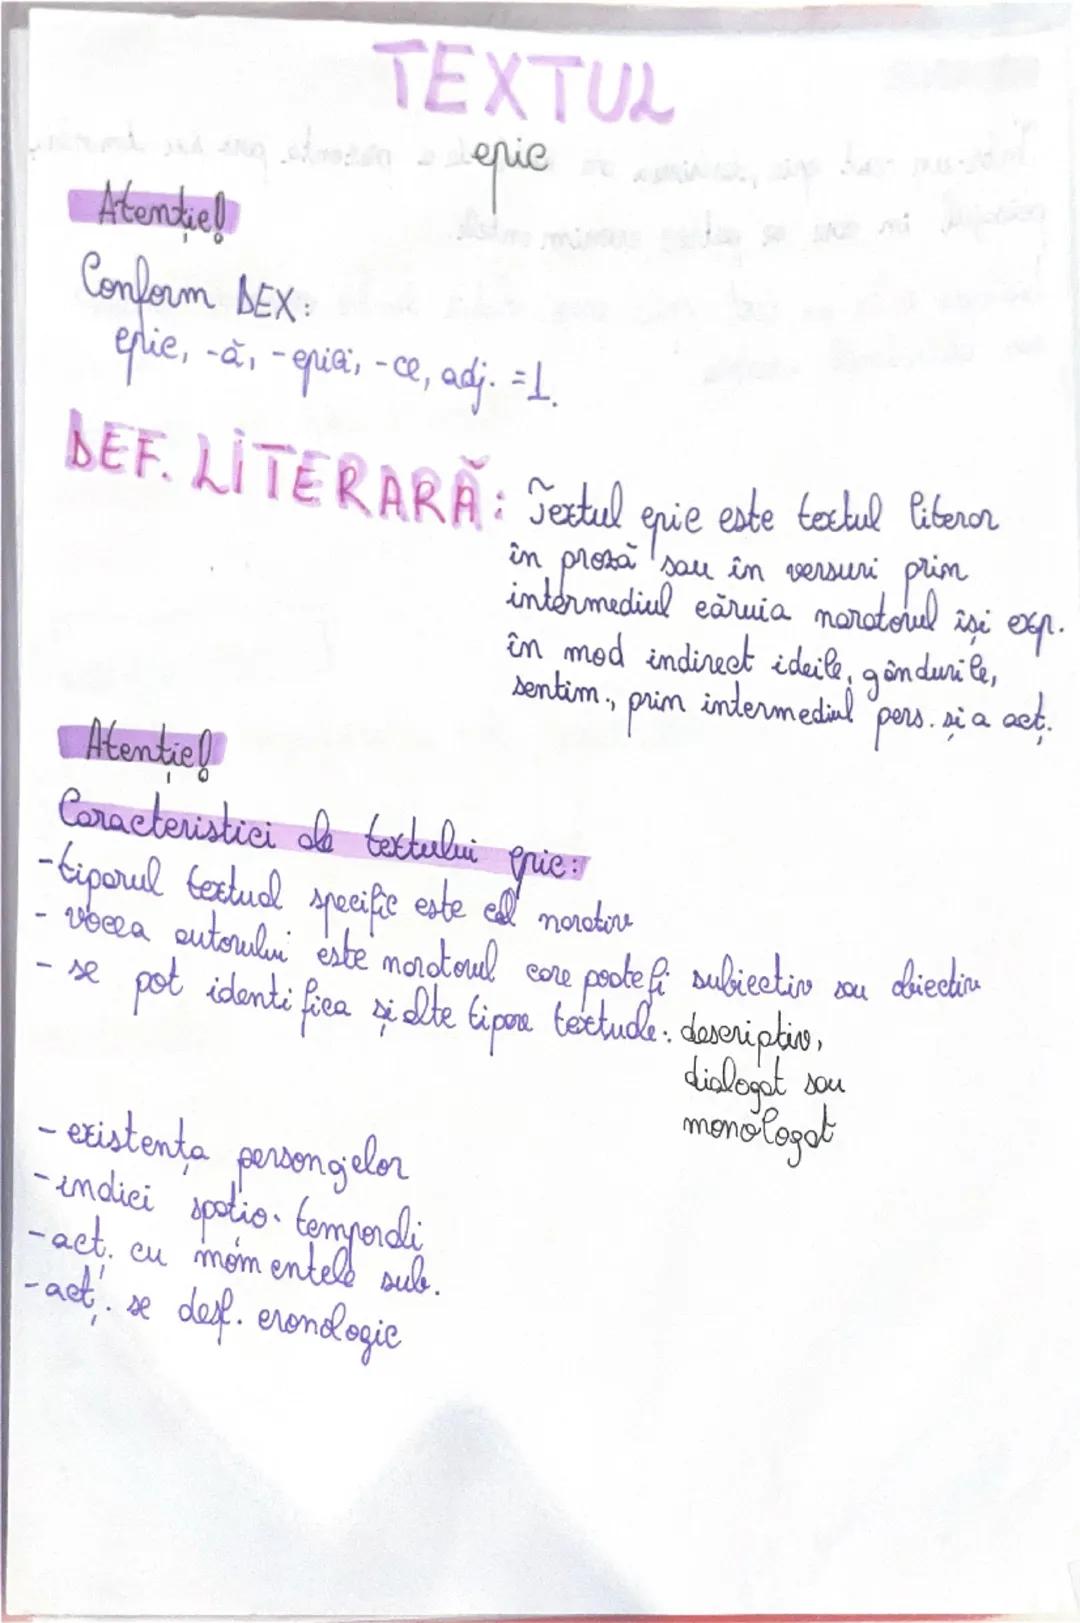 TEXTUL
epic
Atenție!
Conform DEX:
epic, -ă, -epici, -ce, adj. =1.
DEF. LITERARĂ: Textul epic este textul literar
în proză sau în versuri prin
intermediul căruia naratorul își exp.
în mod indirect ideile, gândurile,
sentim., prin intermediul pers. și a acț.
Atenție!
Caracteristici ale textului epic:
-tiparul textual specific este cel narativ
- vocea autorului este naratorul care poate fi subiectiv sau obiectiv
- se pot identifica și alte tipare textuale: descriptiv,
dialogat sau
monologat
- existența personajelor
-indici spatio-temporali
-acț. cu momentele sub.
-acț. se desf. cronologic